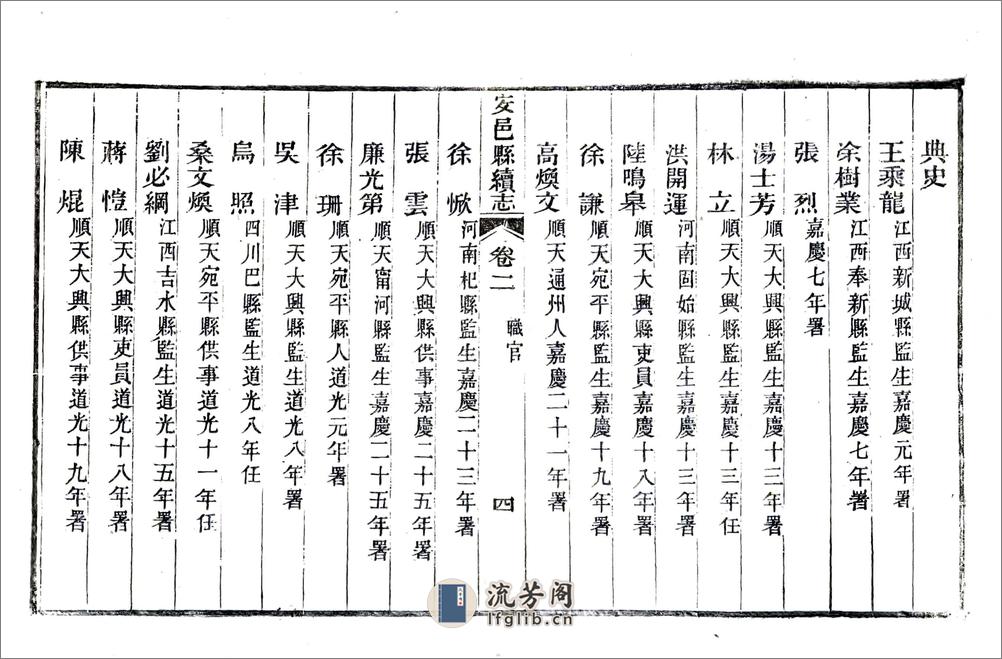 典史
王乘龍 江西新城縣監生嘉慶元年署
余樹業 江西奉新縣監生嘉慶七年署
張烈 嘉慶七年署
湯士芳 順天大興縣監生嘉慶十三年署
林立 順天大興縣監生嘉慶十三年任
洪開運 河南固始縣監生嘉慶十三年署
陸鳴皋 順天大興縣吏員嘉慶十八年署
徐謙 順天宛平縣監生嘉慶十九年署
高煥文 順天通州人嘉慶二十一年署
安邑縣續志 卷二 職官 四
徐焮 河南杞縣監生嘉慶二十三年署
張雲 順天大興縣供事嘉慶二十五年署
廉光第 順天甯河縣監生嘉慶二十五年署
徐珊 順天宛平縣人道光元年署
吳津 順天大興縣監生道光八年署
烏照 四川巴縣監生道光八年任
桑文煥 順天宛平縣供事道光十一年任
劉必綱 江西吉水縣監生道光十五年署
蔣愷 順天大興縣吏員道光十八年署
陳焜 順天大興縣供事道光十九年署
流芳阁
lfglib.cn